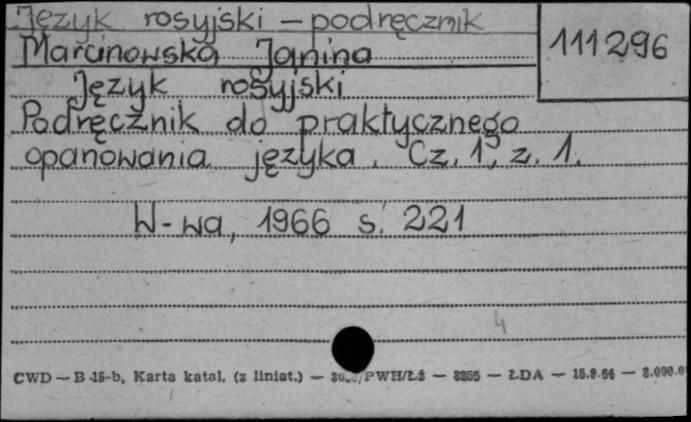 Język rosyjski – podręcznik
111296
Marcinowska Janina
Język rosyjski
Podręcznik do praktycznego
opanowania języka. Cz. 1, z. 1.
W-wa, 1966 s. 221
4
CWD — B-15-b, Karta katal. (z liniat.) — — — ŁDA — 15.9.64 —